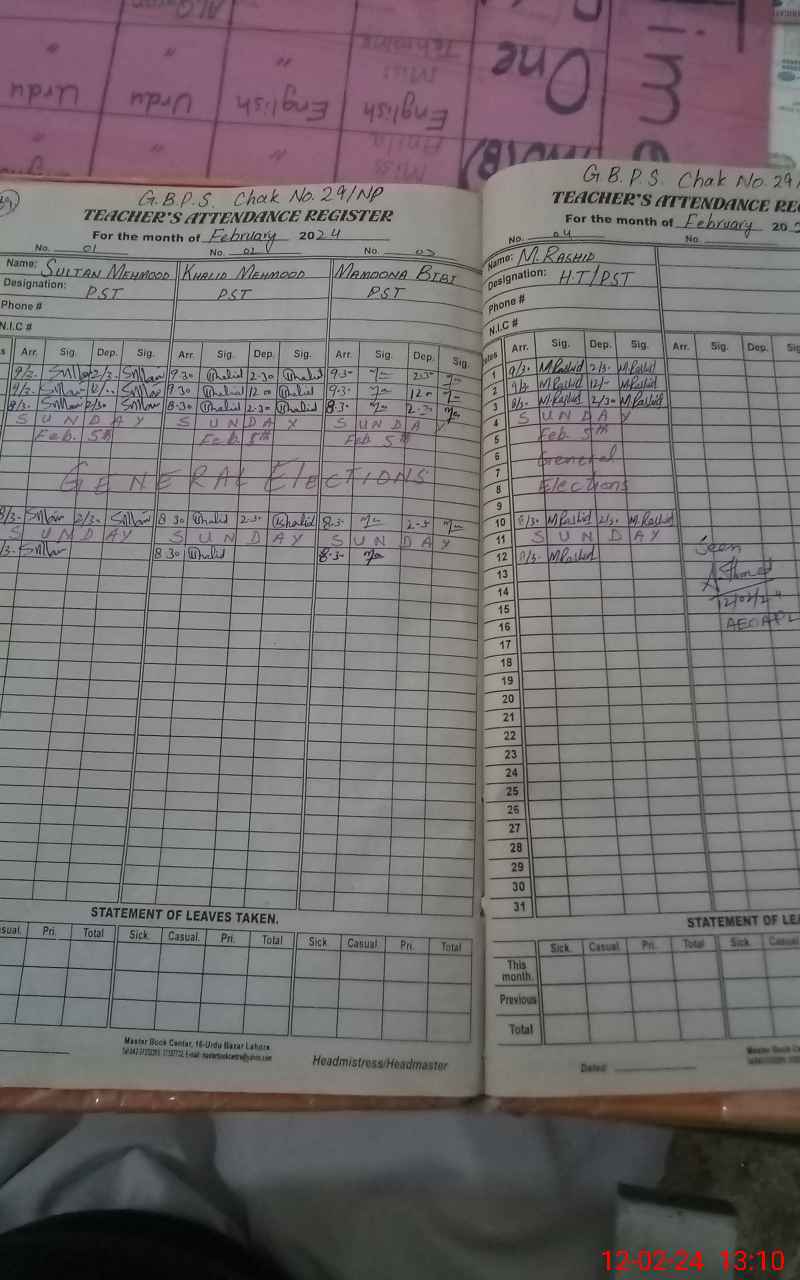 One
English English English Urdu Urdu
Miss
G.B.P.S. Chak No. 29/NP
TEACHER'S ATTENDANCE REGISTER
For the month of February 2024
No. 01 No. 02 No. 03
Name: SULTAN MEHMOOD KHALID MEHMOOD MAMOONA BIBI
Designation: PST PST PST
Phone #
N.I.C #
Arr. Sig. Dep. Sig. Arr. Sig. Dep. Sig. Arr. Sig. Dep. Sig.
9.30 Khalid 2-30 Khalid 9-30
9.30 Khalid 12 00 Khalid 9-3-
8-30 Khalid 2-30 Khalid 8-3-
SUNDAY SUNDAY SUNDAY
Feb. 5th Feb 5th Feb 5th
GENERAL ELECTIONS
8 30 Khalid 2-30 Khalid 8-3-
SUNDAY SUNDAY SUNDAY
8 30 Khalid 8-3-
STATEMENT OF LEAVES TAKEN.
Pri. Total Sick. Casual. Pri. Total Sick Casual. Pri. Total
Master Book Center, 16-Urdu Bazar Lahore.
Headmistress/Headmaster
G.B.P.S. Chak No. 29/
TEACHER'S ATTENDANCE RE
For the month of February 20
No. 04 No.
Name: M. RASHID
Designation: HT/PST
Phone #
N.I.C #
Arr. Sig. Dep. Sig. Arr. Sig. Dep. Sig.
1 9/3- M Rashid 2/3- M.Rashid
2 M Rashid 12/- M.Rashid
3 8/3- M.Rashid 2/30 M.Rashid
4 SUNDAY
5 Feb. 5th
6 General
7
8 Elections
9
10 8/3- M Rashid 2/3- M.Rashid
11 SUNDAY
12 8/3- M.Rashid
Seen
13
14
12/02/24
15
16
17
18
19
20
21
22
23
24
25
26
27
28
29
30
31
STATEMENT OF LE
Sick. Casual. Pri. Total Sick. Casual
This month.
Previous
Total
Master Book Cen
Dated
12-02-24 13:10